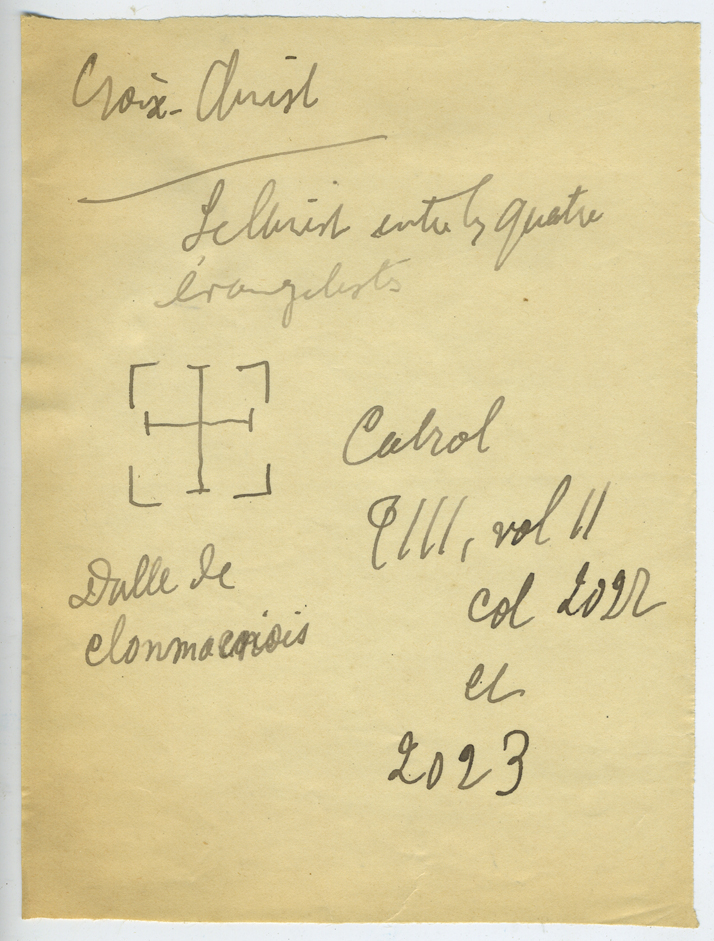 Croix-Christ
Le Christ entre les quatre
évangelists
Cabrol
TIII, vol II
col 2022
et
2023
Dalle de
clonmacnois